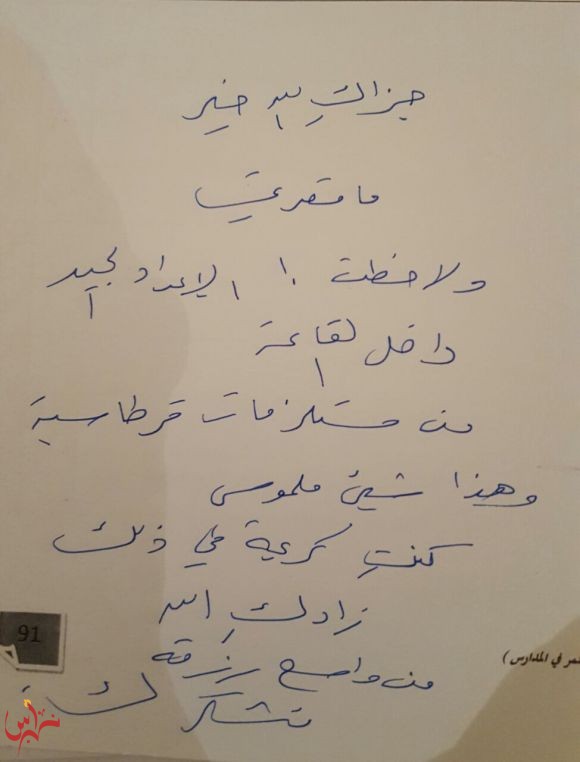 جزاكِ الله خير
ما قصرتي
ولاحظت الإعداد الجيد
داخل القاعة
من مستلزمات قرطاسية
وهذا شيئ ملموس
كنتِ كريمة في ذلك
زادكِ الله
من واسع رزقه
نشكر لك
91
في المدارس )
نبراس